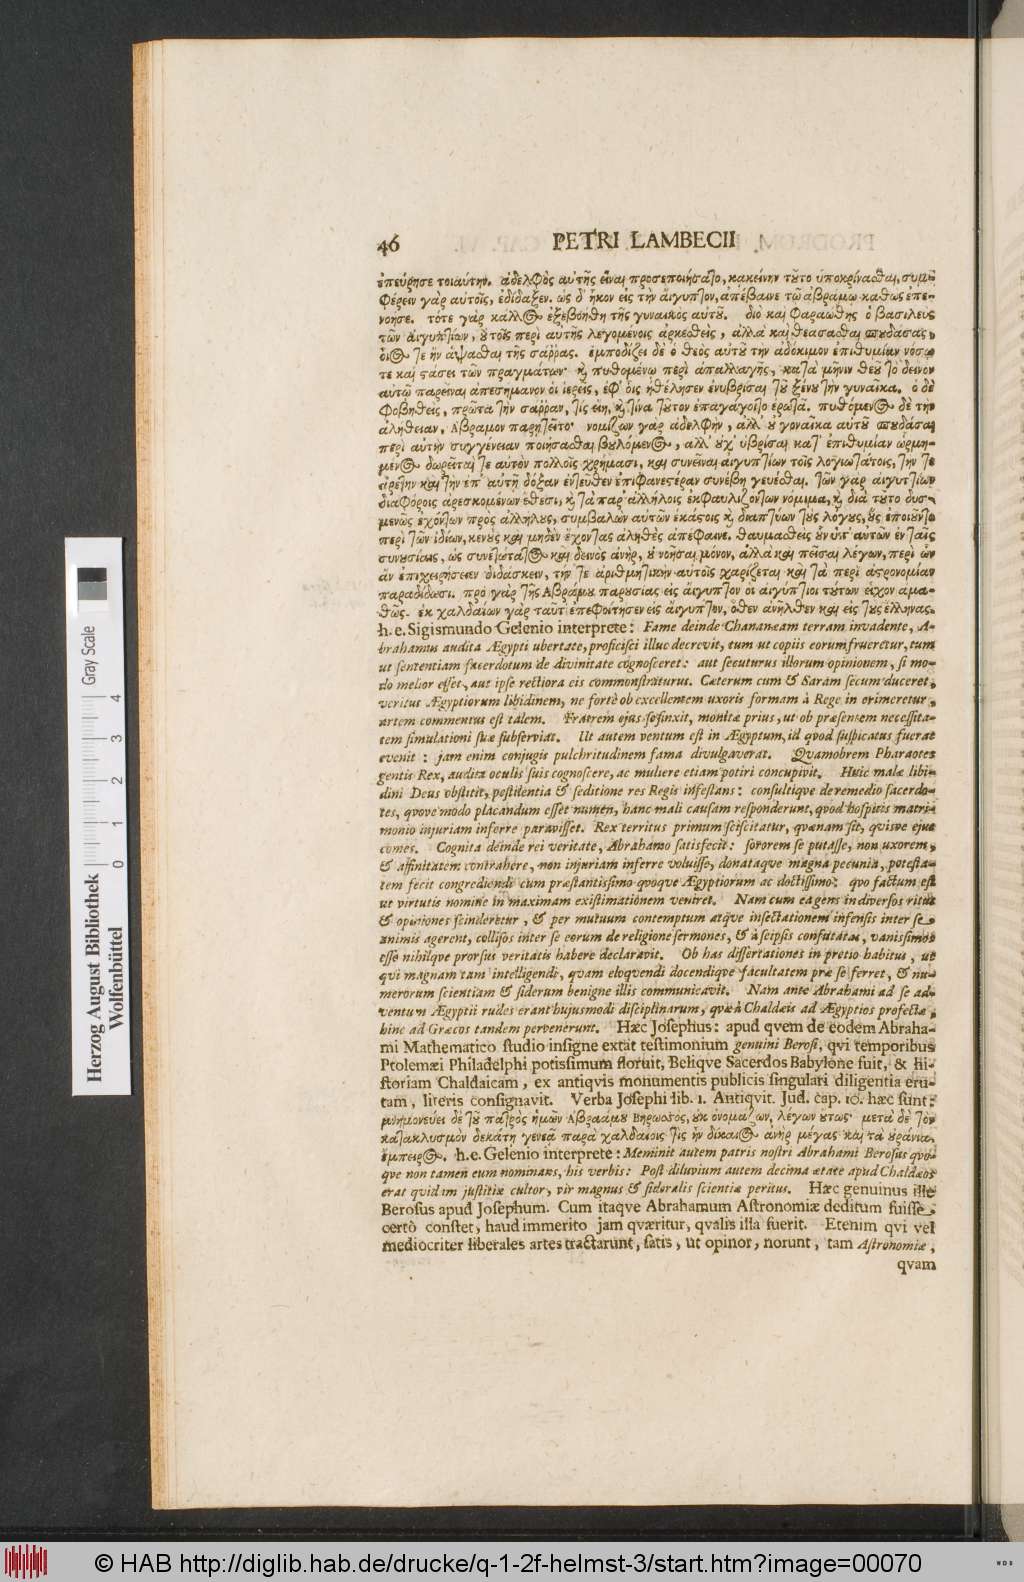 46 PETRI LAMBECII
ἐπεύρησε τοιαύτην. ἀδελφὸς αὐτῆς εἶναι προσεποιήσατο, κακείνην τῦτο ὑποκρίνασθαι, συμ-
φέρειν γὰρ αὐτοῖς, ἐδίδαξεν. ὡς δ' ἧκον εἰς τὴν αἰγυπτον, ἀπέβαινε τῶ ἀβράμῳ καθως ἐπε-
νοησε. τότε γὰρ κάλλος ἐξεβοήθη τῆς γυναικὸς αὐτοῦ. διὸ καὶ Φαραώθης ὁ βασιλευς
τῶν αἰγυπτίων, οὐ τοῖς περὶ αὐτῆς λεγομένοις ἀρκεσθεὶς, ἀλλὰ καὶ θεασασθαι σπουδάσας,
οἷός τε ἦν ἅψασθαι τῆς σάῤῥας. ἐμποδίζει δὲ ὁ θεὸς αὐτοῦ τὴν ἀδόκιμον ἐπιθυμίαν νόσῳ
τε καὶ στάσει τῶν πραγμάτων· καὶ πυθομένῳ περὶ ἀπαλλαγῆς, κατὰ μῆνιν θεοῦ τὸ δεινον
αὐτῶ παρεῖναι ἀπεσήμαινον οἱ ἱερεῖς, ἐφ' οἷς ἠθέλησεν ἐνυβρίσαι τοῦ ξένου τὴν γυναῖκα. ὁ δὲ
φοβηθεὶς, πρῶτα τὴν σαῤῥαν, τίς εἴη, καὶ τίνα τοῦτον ἐπαγάγοιτο ἐρωτᾶ. πυθόμενος δὲ τὴν
ἀλήθειαν, Αβραμον παρητεῖτο· νομίζων γὰρ ἀδελφὴν, ἀλλ' οὐ γυναῖκα αὐτοῦ σπουδάσαι
περὶ αὐτὴν συγγένειαν ποιήσασθαι βουλόμενος, ἀλλ' οὐχ' ὑβρίσαι κατ' ἐπιθυμίαν ὡρμη-
μένος δωρεῖται τε αὐτὸν πολλοῖς χρήμασι, καὶ συνεῖναι αἰγυπτίων τοῖς λογιωτάτοις, τήν τε
ἀρετὴν καὶ τὴν ἐπ' αὐτῇ δόξαν ἐντεῦθεν ἐπιφανεστέραν συνέβη γενέσθαι. τῶν γὰρ αἰγυπτίων
διαφόροις ἀρεσκομένων ἔθεσι, καὶ τὰ παρ' ἀλλήλοις ἐκφαυλιζόντων νόμιμα, καὶ διὰ τοῦτο δυσ-
μενῶς ἐχόντων πρὸς ἀλλήλους, συμβαλὼν αὐτῶν ἑκάστοις καὶ διαπτύων τοὺς λόγους, οὓς ἐποιοῦντο
περὶ τῶν ἰδίων, κενοὺς καὶ μηδὲν ἔχοντας ἀληθὲς ἀπέφαινε. θαυμασθεὶς οὖν ὑπ' αὐτῶν ἐν ταῖς
συνουσίαις, ὡς συνετώτατος καὶ δεινὸς ἀνὴρ, οὐ νοῆσαι μόνον, ἀλλὰ καὶ πεῖσαι λέγων, περὶ ὧν
ἂν ἐπιχειρήσειεν διδάσκειν, τήν τε ἀριθμητικὴν αὐτοῖς χαρίζεται καὶ τὰ περὶ ἀστρονομίαν
παραδίδωσι. πρὸ γὰρ τῆς Ἀβράμου παρουσίας εἰς αἴγυπτον οἱ αἰγύπτιοι τούτων εἶχον ἀμα-
θῶς. ἐκ χαλδαίων γὰρ ταῦτ' ἐπεφοίτησεν εἰς αἴγυπτον, ὅθεν ἀνῆλθεν καὶ εἰς τοὺς ἕλληνας.
h. e. Sigismundo Gelenio interprete: Fame deinde Chananæam terram invadente, A-
brahamus audita Ægypti ubertate, proficisci illuc decrevit, tum ut copiis eorum frueretur, tum
ut sententiam sacerdotum de divinitate cognosceret: aut secuturus illorum opinionem, si mo-
do melior esset, aut ipse rectiora eis commonstraturus. Cæterum cum & Saram secum duceret,
veritus Ægyptiorum libidinem, ne fortè ob excellentem uxoris formam à Rege interimeretur,
artem commentus est talem. Fratrem ejus se finxit, monitæ prius, ut ob præsentem necessita-
tem simulationi suæ subserviat. Ut autem ventum est in Ægyptum, id quod suspicatus fuerat
evenit: jam enim conjugis pulchritudinem fama divulgaverat. Quamobrem Pharaotes
gentis Rex, audita oculis suis cognoscere, ac muliere etiam potiri concupivit. Huic malæ libi-
dini Deus obstitit, pestilentia & seditione res Regis infestans: consultique de remedio sacerdo-
tes, quove modo placandum esset numen, hanc mali causam responderunt, quod hospitis matri-
monio injuriam inferre paravisset. Rex territus primum sciscitatur, quænam sit, quisve ejus
comes. Cognita deinde rei veritate, Abrahamo satisfecit: sororem se putasse, non uxorem,
& affinitatem contrahere, non injuriam inferre voluisse, donataque magna pecunia, potesta-
tem fecit congrediendi cum præstantissimo quoque Ægyptiorum ac doctissimo; quo factum est
ut virtutis nomine in maximam existimationem veniret. Nam cum ea gens in diversos ritus
& opiniones scinderetur, & per mutuum contemptum atque insectationem infensis inter se
animis agerent, collisos inter se eorum de religione sermones, & à seipsis confutatos, vanissimos
esse nihilque prorsus veritatis habere declaravit. Ob has dissertationes in pretio habitus, ut
qui magnam tam intelligendi, quam eloquendi docendique facultatem præ se ferret, & nu-
merorum scientiam & siderum benigne illis communicavit. Nam ante Abrahami ad se ad-
ventum Ægyptii rudes erant hujusmodi disciplinarum, quæ à Chaldæis ad Ægyptios profectæ,
hinc ad Græcos tandem pervenerunt. Hæc Josephus: apud qvem de eodem Abraha-
mi Mathematico studio insigne extat testimonium genuini Berosi, qvi temporibus
Ptolemæi Philadelphi potissimum floruit, Beliqve Sacerdos Babylone fuit, & hi-
storiam Chaldaicam, ex antiqvis monumentis publicis singulari diligentia eru-
tam, literis consignavit. Verba Josephi lib. 1. Antiqvit. Jud. cap. 10. hæc sunt:
μνημονεύει δὲ τοῦ πατρὸς ἡμῶν Ἀβραάμου Βηρωσὸς, οὐκ ὀνομάζων, λέγων οὕτως· μετὰ δὲ τὸν
κατακλυσμὸν δεκάτῃ γενεᾷ παρὰ χαλδαίοις τὶς ἦν δίκαιος ἀνὴρ μέγας καὶ τὰ οὐράνια
ἔμπειρος. h. e. Gelenio interprete: Meminit autem patris nostri Abrahami Berosus quo-
que non tamen eum nominans, his verbis: Post diluvium autem decima ætate apud Chaldæos
erat quidam justitiæ cultor, vir magnus & sideralis scientiæ peritus. Hæc genuinus ille
Berosus apud Josephum. Cum itaqve Abrahamum Astronomiæ deditum fuisse,
certò constet, haud immerito jam qværitur, qvalis illa fuerit. Etenim qvi vel
mediocriter liberales artes tractarunt, satis, ut opinor, norunt, tam Astronomiæ,
qvam
Herzog August Bibliothek
Wolfenbüttel
Gray Scale
0 1 2 3 4
© HAB http://diglib.hab.de/drucke/q-1-2f-helmst-3/start.htm?image=00070